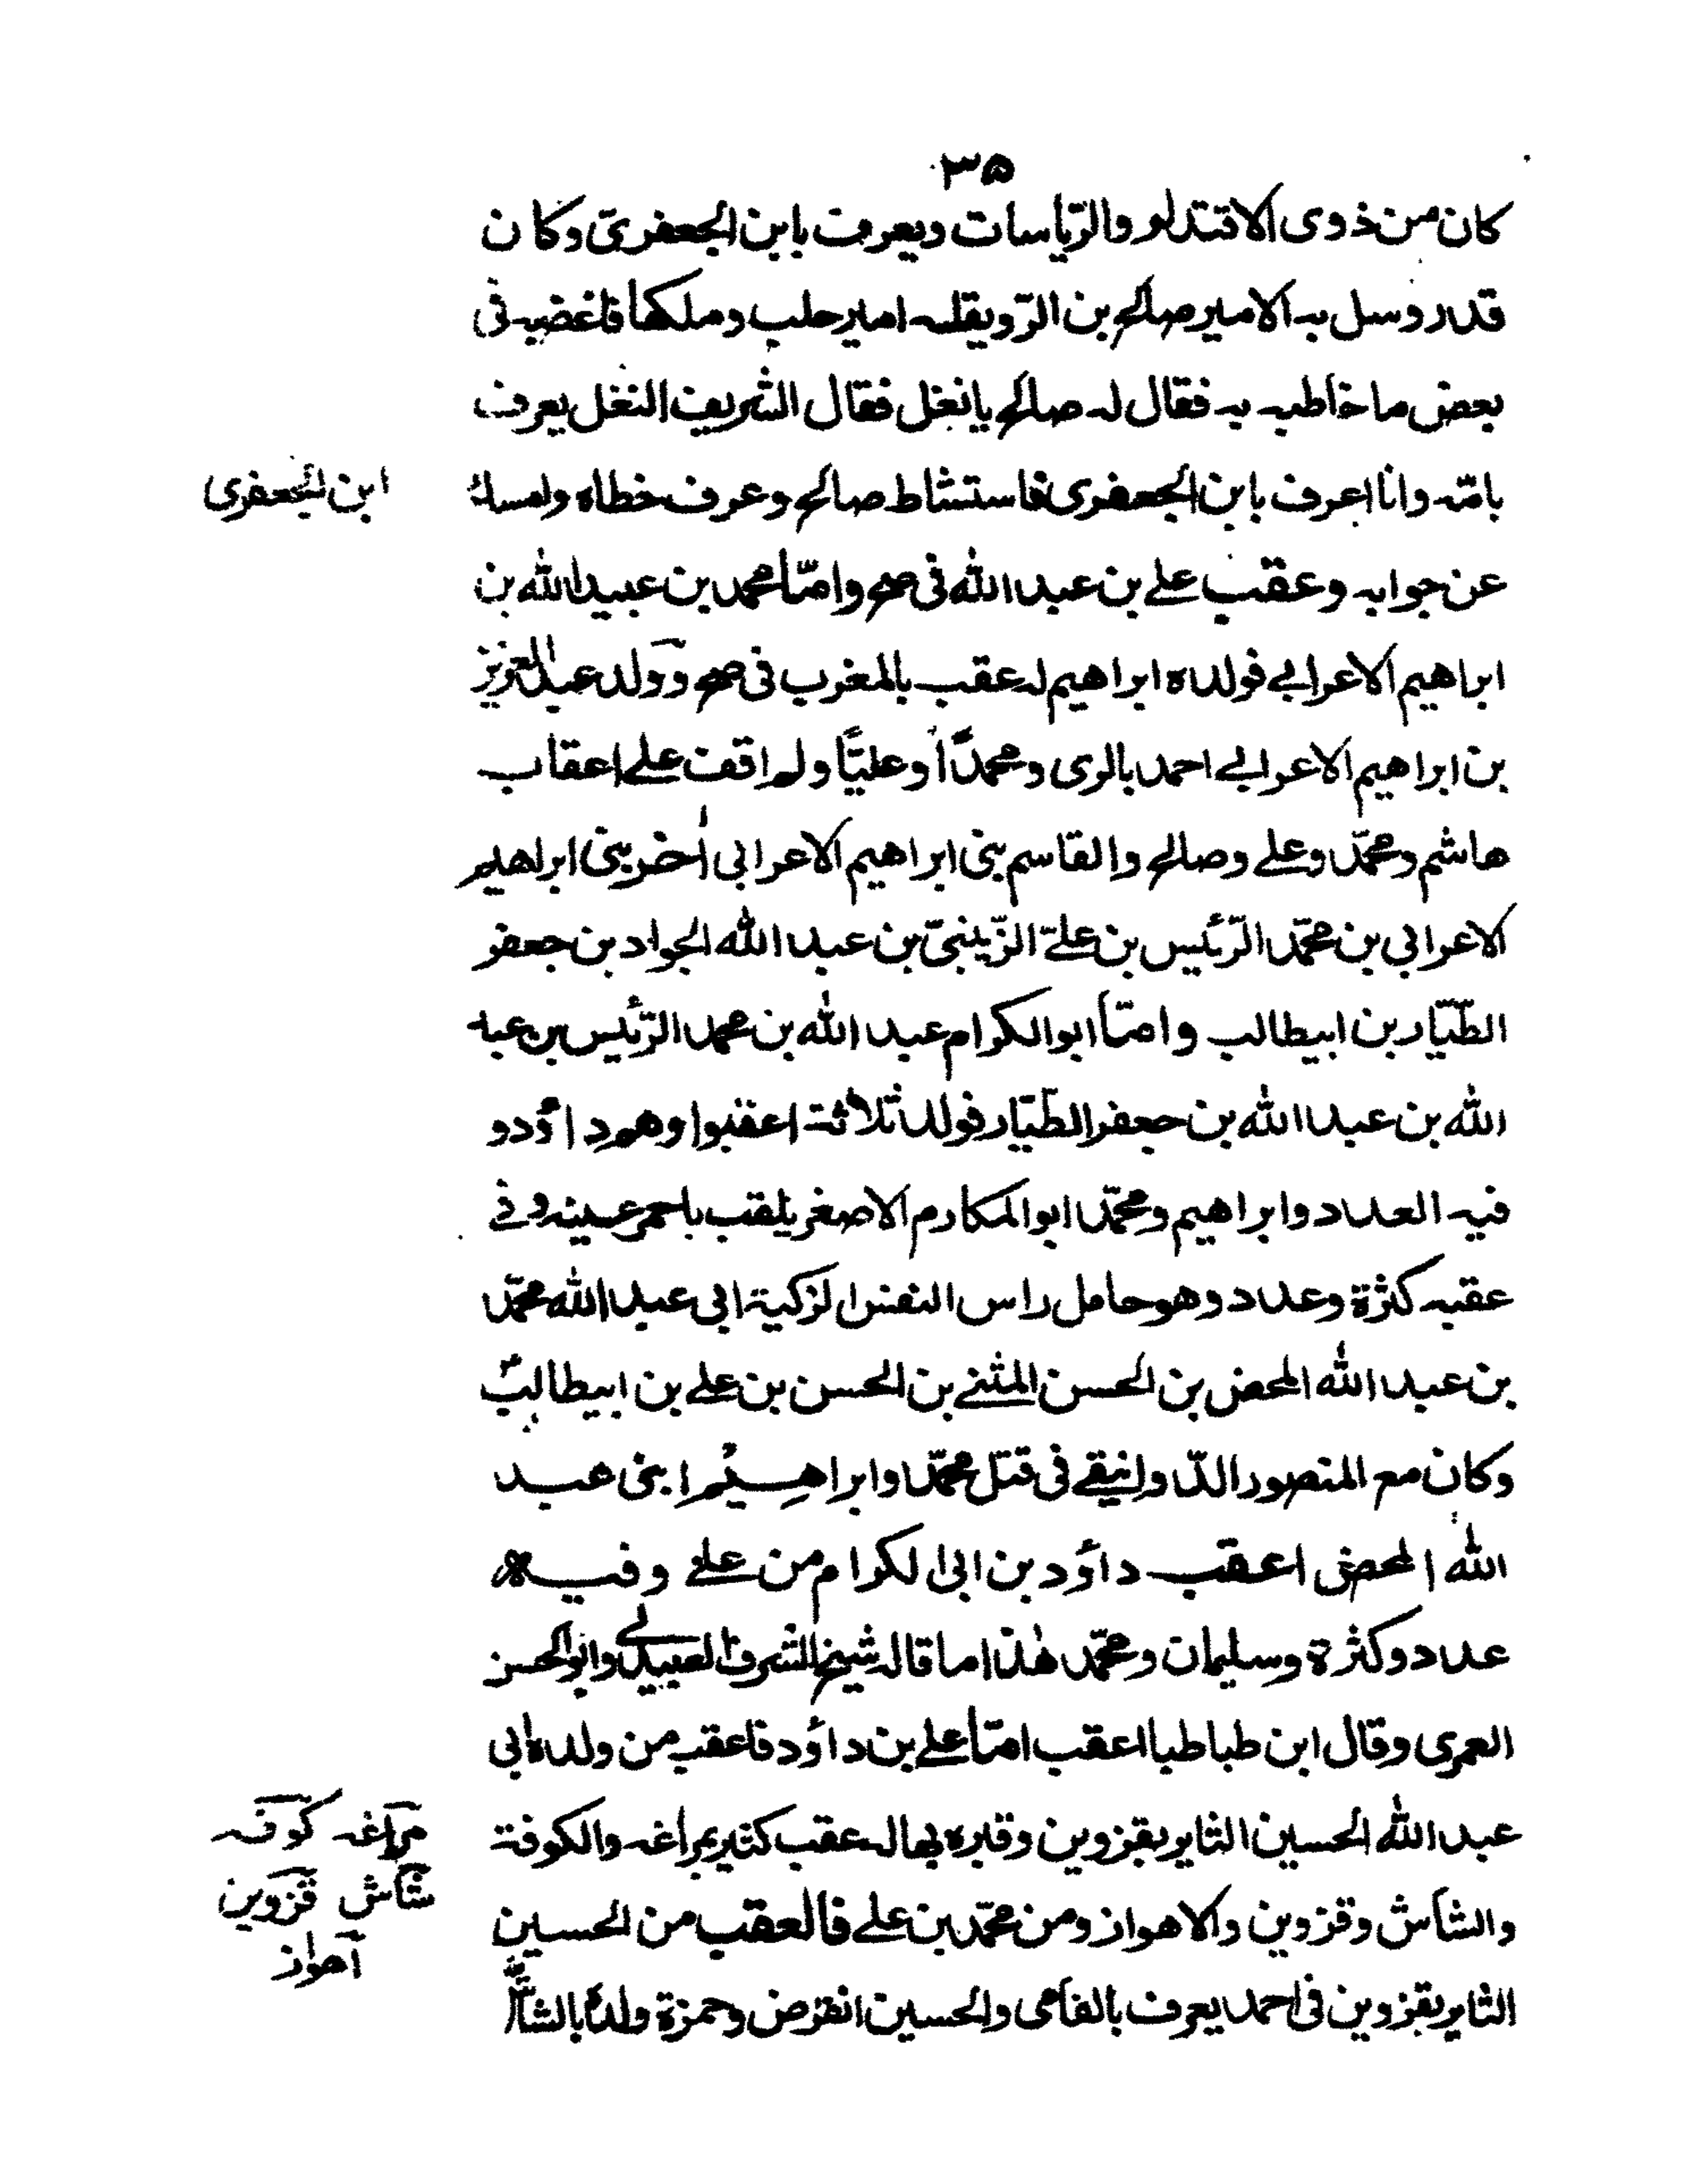 ٣٥
كان من ذوى الاقتدار والرّياسات ويعرف بابن الجعفرىّ وكان
قد روسل به الامير صالح بن الرّويقليه امير حلب وملكها فاغضبه فى
بعض ما خاطبه به فقال له صالح يا نغل فقال الشّريف النغل يعرف
بامّه وانا اعرف بابن الجعفرى فاستشاط صالح وعرف خطاه وامساك
ابن الجعفرى
عن جوابه وعقب على بن عبد الله فى صح وامّا محمد بن عبيد الله بن
ابراهيم الاعرابى فولده ابراهيم له عقب بالمغرب فى صح وولد عبد العزيز
بن ابراهيم الاعرابى احمد بالرى ومحمدًا وعليًّا ولم اقف على اعقاب
هاشم ومحمّد وعلى وصالح والقاسم بنى ابراهيم الاعرابى اخر بنى ابراهيم
الاعرابى بن محمّد الرّئيس بن علىّ الزّينبىّ بن عبد الله الجواد بن جعفر
الطّيّار بن ابيطالب وامّا ابو الكرام عبد الله بن محمد الرّئيس بن عبد
الله بن عبد الله بن جعفر الطّيّار فولد ثلاثة اعقبوا وهم داؤد و
فيه العدد وابراهيم ومحمّد ابو المكارم الاصغر يلقب باحمر عينه وفى
عقبه كثرة وعدد وهو حامل راس النفس الزكية ابى عبد الله محمّد
بن عبد الله المحض بن الحسن المثنى بن الحسن بن على بن ابيطالبؑ
وكان مع المنصور الدّوانيقى فى قتل محمّد وابراهيم ابنى عبد
الله المحض اعقب داؤد بن ابى الكرام من على وفيه
عدد وكثرة وسليمان ومحمّد هذا ما قاله شيخ الشرف العبيدلى وابو الحسن
العمرى وقال ابن طباطبا اعقب امّا على بن داؤد فاعقب من ولده ابى
عبد الله الحسين الثاير بقزوين وقبره بها له عقب كثير بمراغه والكوفة
مراغه كوفه
والشاش وقزوين والاهواز ومن محمّد بن على فالعقب من الحسين
شاش قزوين
اهواز
الثاير بقزوين فى احمد يعرف بالفامى والحسين انقرض وحمزة ولده بالشاش